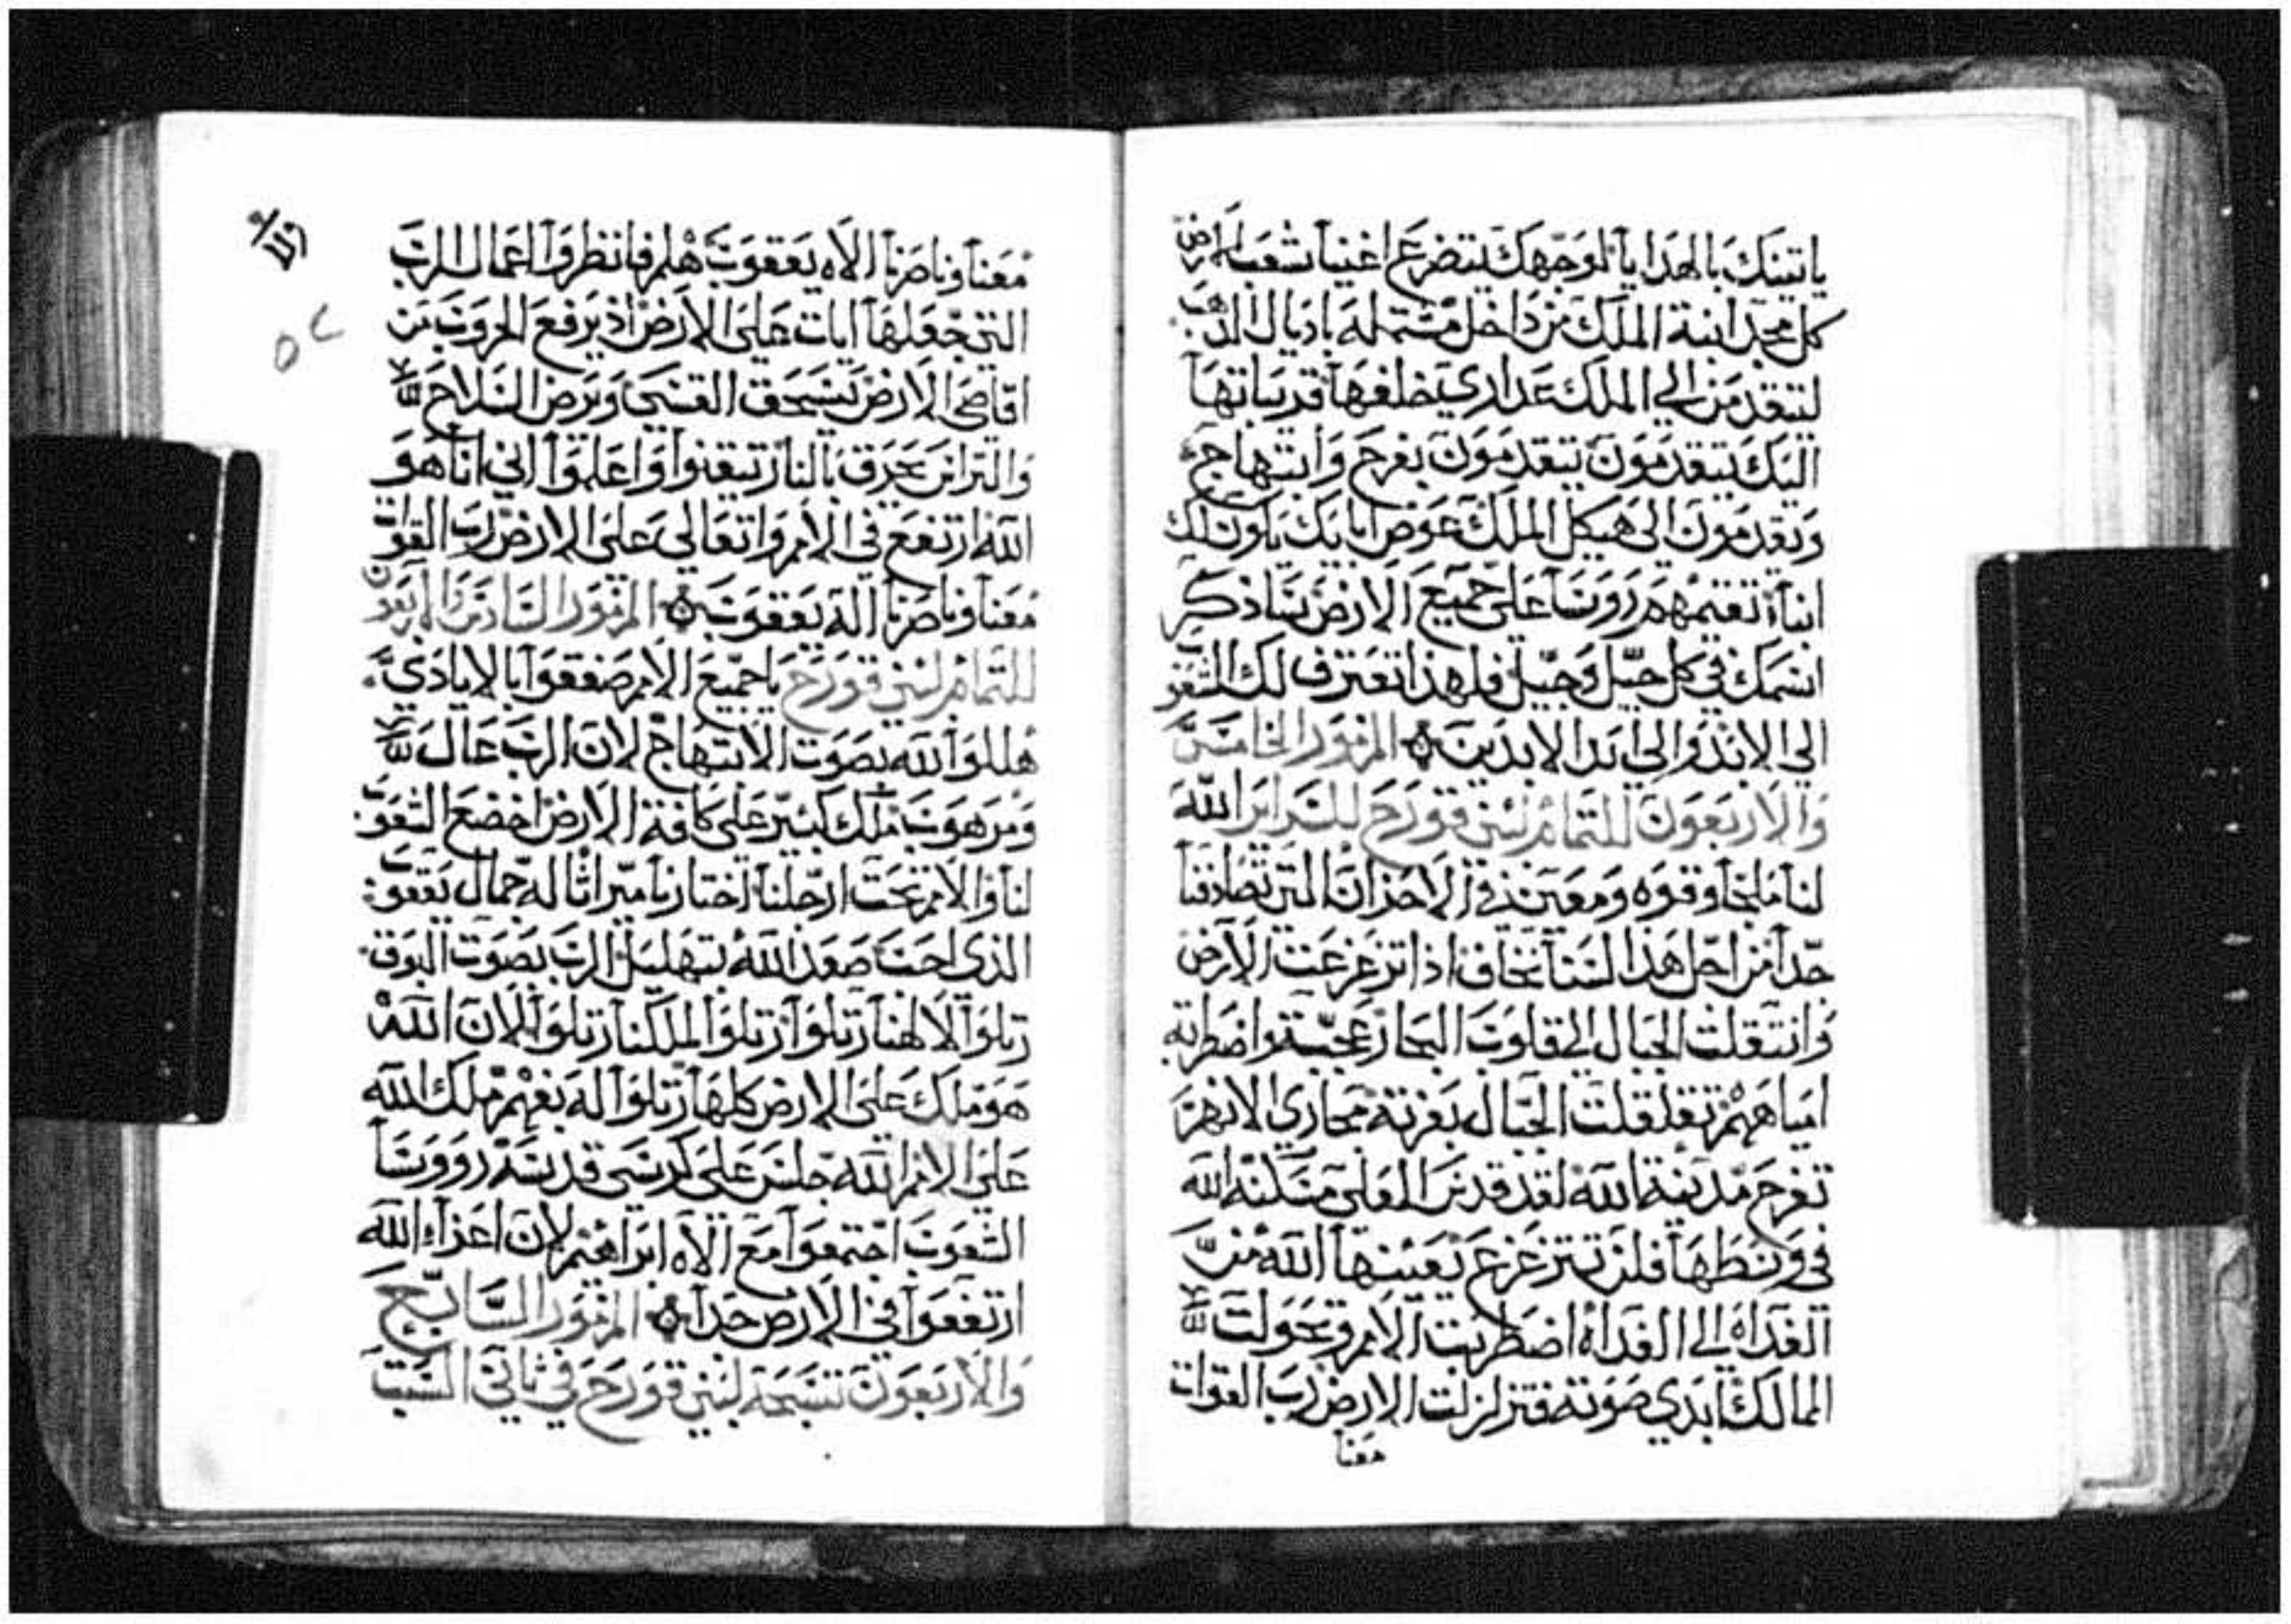 ياتينك بالهدايا لوجهك يتضرع اغنيا شعب الارض
كل مجد ابنة الملك من داخل مشتمله باذيال الذهب
لتتقدمن الي الملك عداري خلفها قريباتها
اليك يتقدمون يتقدمون بفرح وابتهاج
وتقدمون الى هيكل الملك عوض ابايك ياون لك
ابنآ تقيمهم رووسا على جميع الارض ساذكر
اسمك في كل جيل وجيل فلهذا تعترف لك الشعوب
الى الابد والي ابد الابدين المزمور الخامس
والاربعون للتمام لبني قورح للسراير الله
لنا ملجا وقوه ومعين في الاحزان التي تصادفنا
جدا من اجل هذا لسنا نخاف اذا تزعزعت الارض
وانتقلت الجبال الى قلوب البحار عجت واضطربة
امياههم تقلقلت الجبال بعزته مجاري الانهر
تفرح مدينة الله لقد قدس العلي مسكنه الله
في وسطها فلن تتزعزع يعينها الله من
الغداة الى الغداة اضطربت الامم وتحولت
الممالك ابدي صوته فتزلزلت الارض رب القوات
معنا
معنا وناصرنا الاه يعقوب هلم فانظروا اعمال الرب
التي جعلها ايات على الارض اذ يرفع الحروب من
اقاصي الارض يسحق القسي ويرض السلاح
والتراس يحرق بالنار تيقنوا واعلموا اني انا هو
الله ارتفع في الامم واتعالي على الارض رب القوات
معنا وناصرنا اله يعقوب المزمور السادس والاربعون
للتمام لبني قورح يا جميع الامم صفقوا بالايادي
هللوا لله بصوت الابتهاج لان الرب عال
ومرهوب ملك كبير على كافة الارض اخضع الشعوب
لنا والامم تحت ارجلنا اختارنا ميراثا له جمال يعقوب
الذي احب صعد الله بتهليل الرب بصوت البوق
رتلوا لالهنا رتلوا رتلوا لملكنا رتلوا لان الله
هو ملك على الارض كلها رتلوا له بفهم ملك الله
على الامم الله جلس على كرسي قدسه رووسا
الشعوب اجتمعوا مع الاه ابراهيم لان اعزاء الله
ارتفعوا في الارض جدا المزمور السابع
والاربعون تسبحة لبني قورح في ثاني السبت